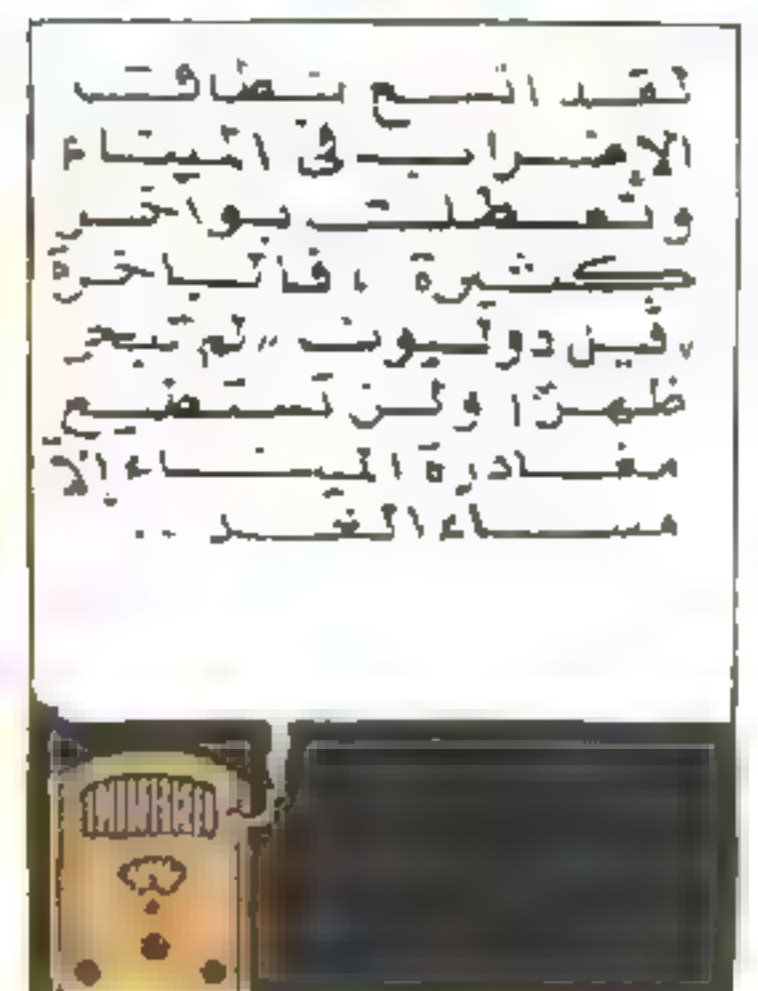 لقد اتسع نطاق
الإضراب في الميناء
وتعطلت بواخر
كثيرة ، فالباخرة
دوليوت „ لم تبحر
ظهرًا ولن تستطيع
مغادرة الميناء إلا
مساء الغد ..